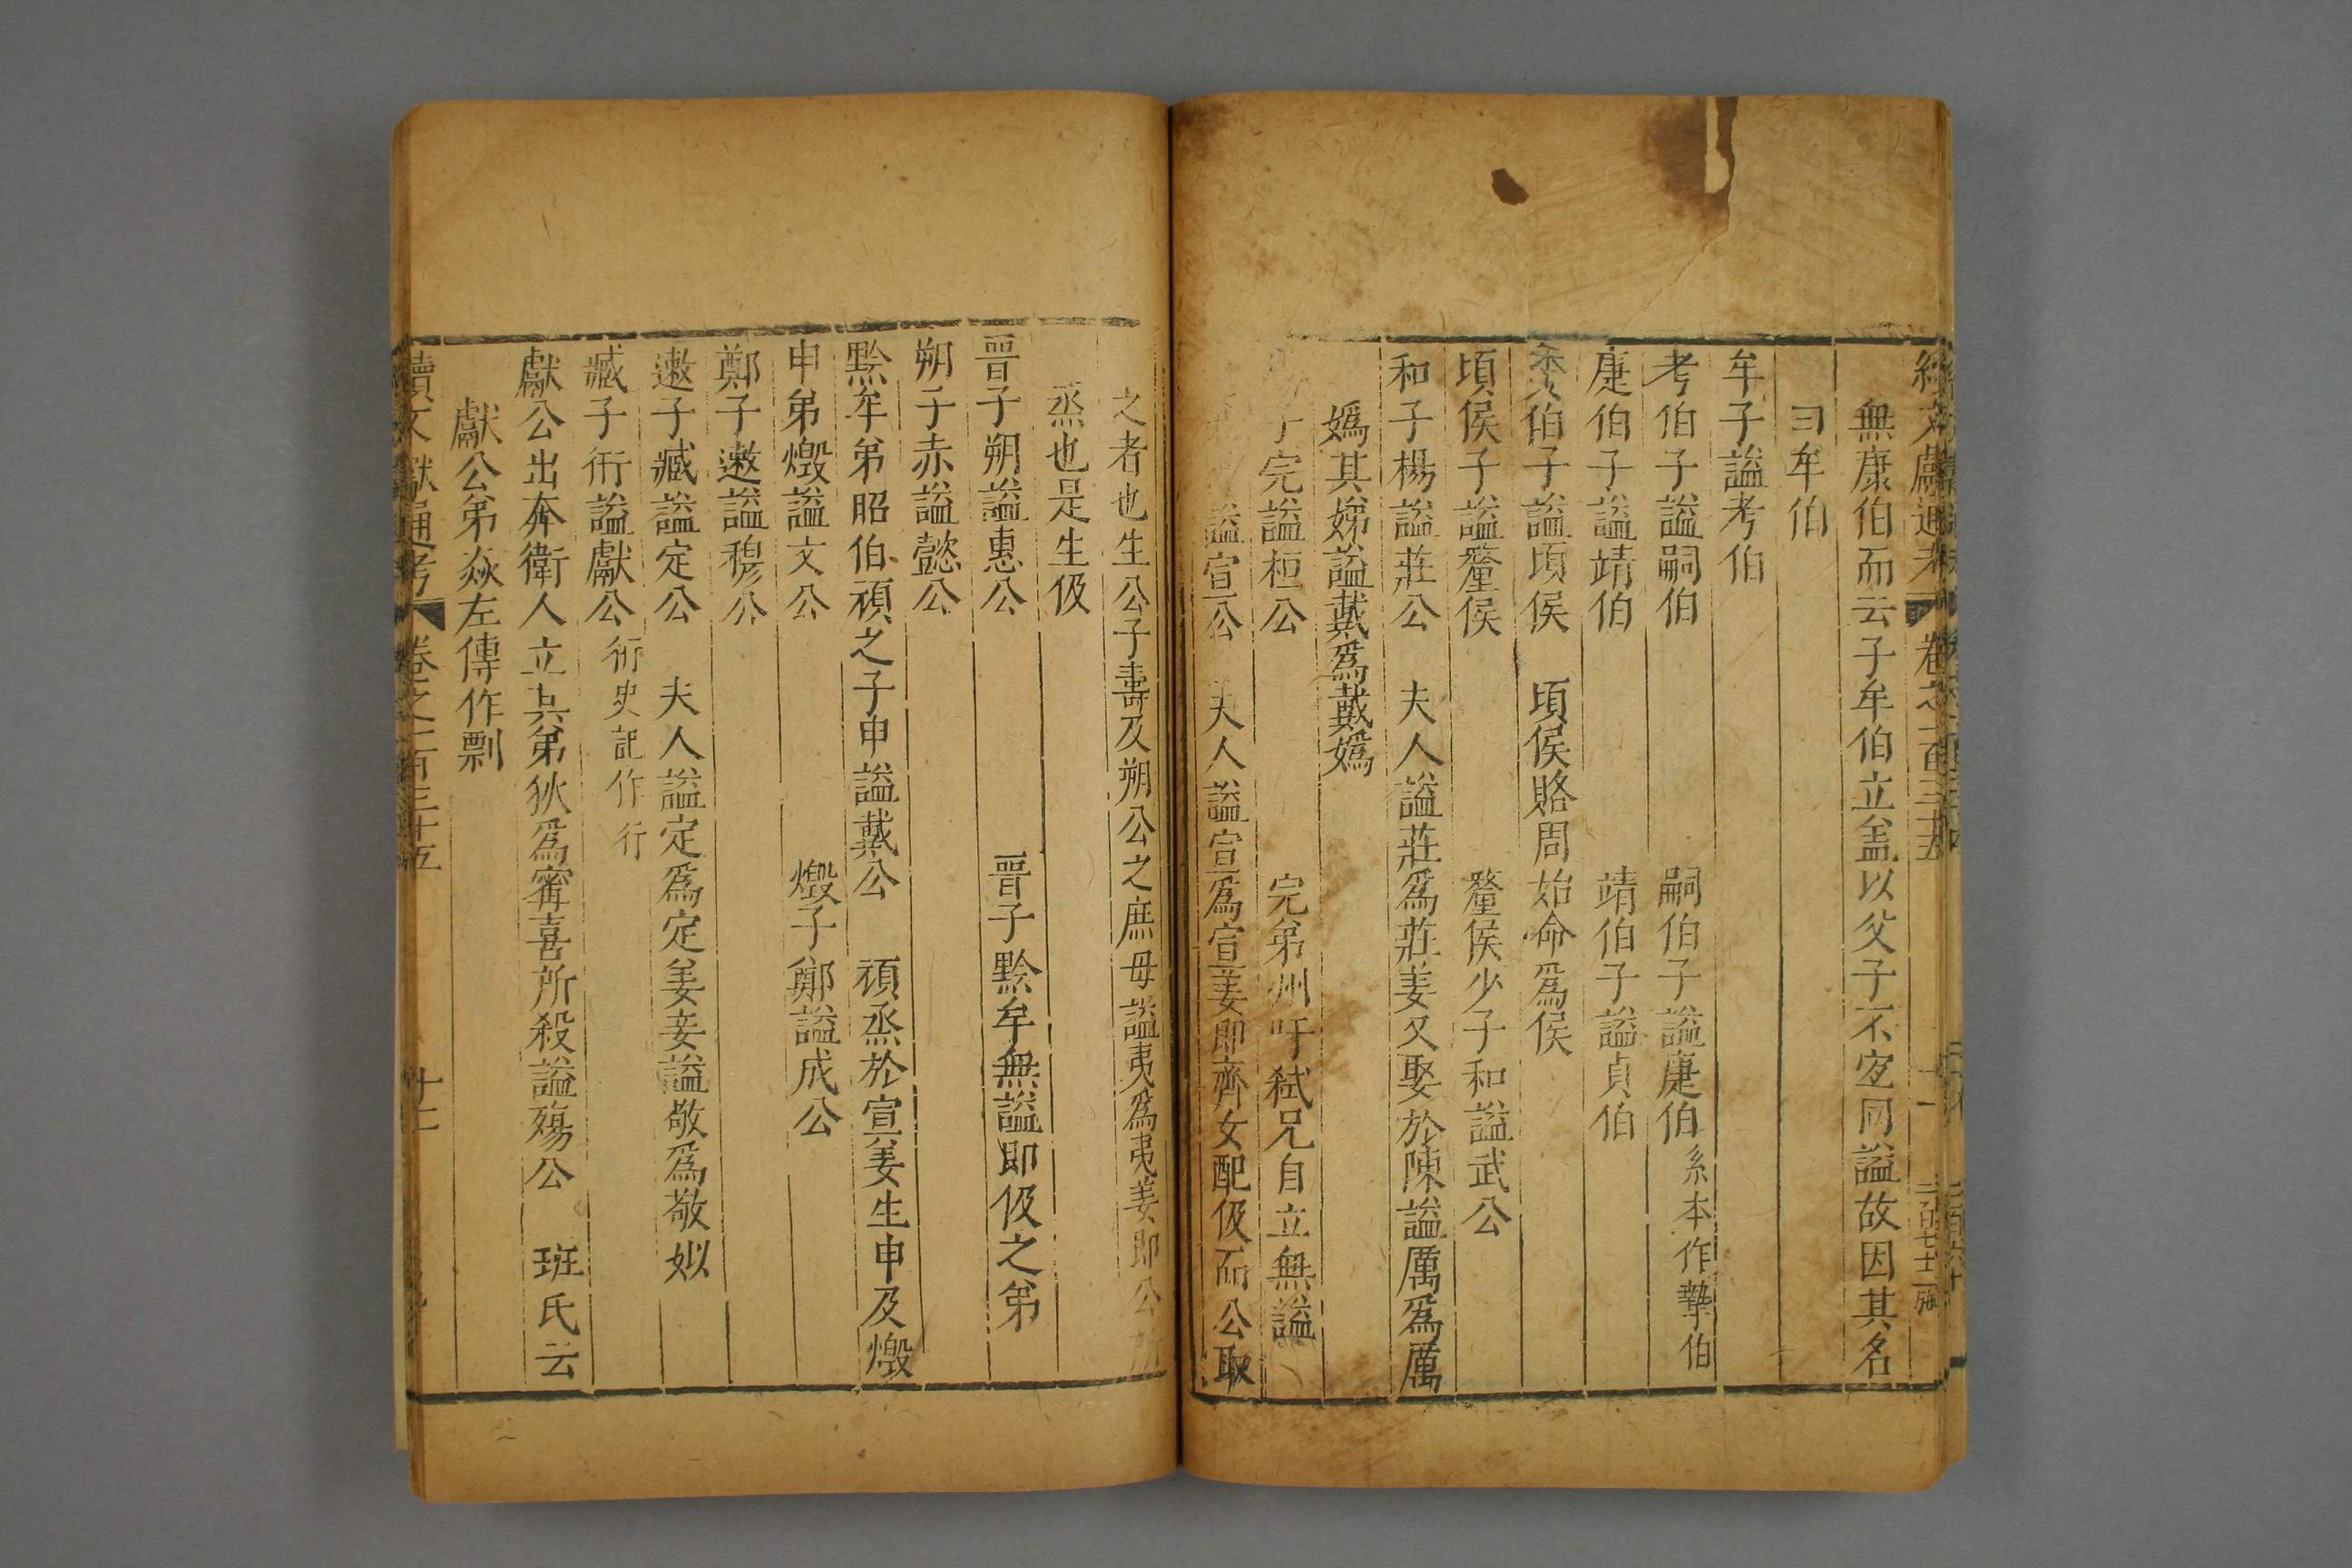 續文獻通考 卷之一百三十五
無康伯而云子牟伯立盖以父子不宐同謚故因其名
曰牟伯
牟子謚考伯
考伯子謚嗣伯 嗣伯子謚庚伯系本作摯伯
庚伯子謚靖伯 靖伯子謚貞伯
伯子謚頃侯 頃侯賂周始命爲侯
頃侯子謚釐侯 釐侯少子和謚武公
和子楊謚莊公 夫人謚莊爲莊姜又娶於陳謚厲爲厲
嬀其娣謚戴爲戴嬀
子完謚桓公 完弟州吁弑兄自立無謚
謚宣公 夫人謚宣爲宣姜即齊女配伋而公取
之者也生公子壽及朔公之庶母謚夷爲夷姜即公
烝也是生伋
晉子朔謚惠公 晉子黔牟無謚即伋之弟
朔子赤謚懿公
黔牟弟昭伯頑之子申謚戴公 頑烝於宣姜生申及燬
申弟燬謚文公 燬子鄭謚成公
鄭子遬謚穆公
遬子臧謚定公 夫人謚定爲定姜妾謚敬爲敬姒
臧子衎謚獻公衎史記作行
獻公出奔衛人立其弟狄爲寗喜所殺謚殤公 班氏云
獻公弟焱左傳作剽
續文獻通考 卷之一百三十五 十二